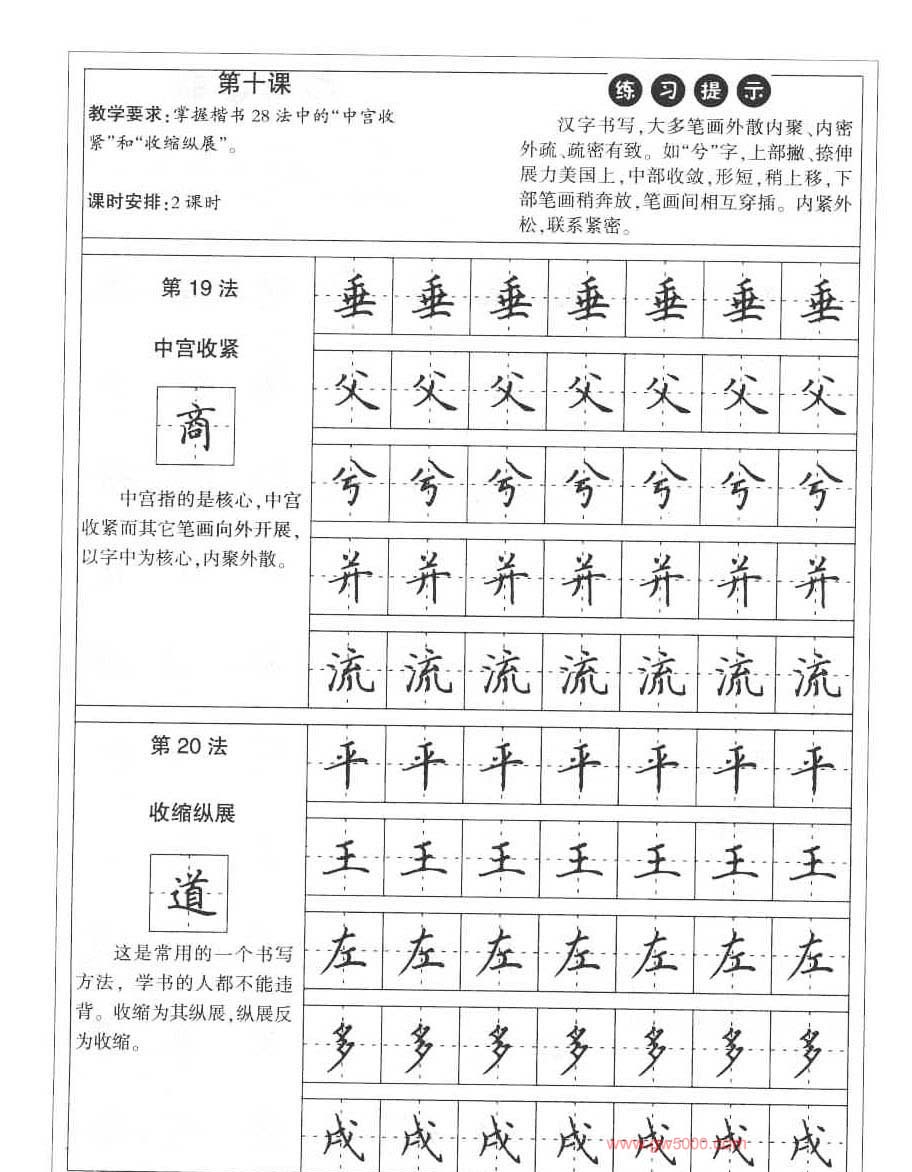 第十课
教学要求:掌握楷书28法中的“中宫收
紧”和“收缩纵展”。
课时安排:2课时
练习提示
汉字书写,大多笔画外散内聚、内密
外疏、疏密有致。如“兮”字,上部撇、捺伸
展力美国上,中部收敛,形短,稍上移,下
部笔画稍奔放,笔画间相互穿插。内紧外
松,联系紧密。
第19法
中宫收紧
商
中宫指的是核心,中宫
收紧而其它笔画向外开展,
以字中为核心,内聚外散。
垂垂垂垂垂垂垂
父父父父父父父
兮兮兮兮兮兮兮
并并并并并并并
流流流流流流流
第20法
收缩纵展
道
这是常用的一个书写
方法，学书的人都不能违
背。收缩为其纵展,纵展反
为收缩。
平平平平平平平
王王王王王王王
左左左左左左左
多多多多多多多